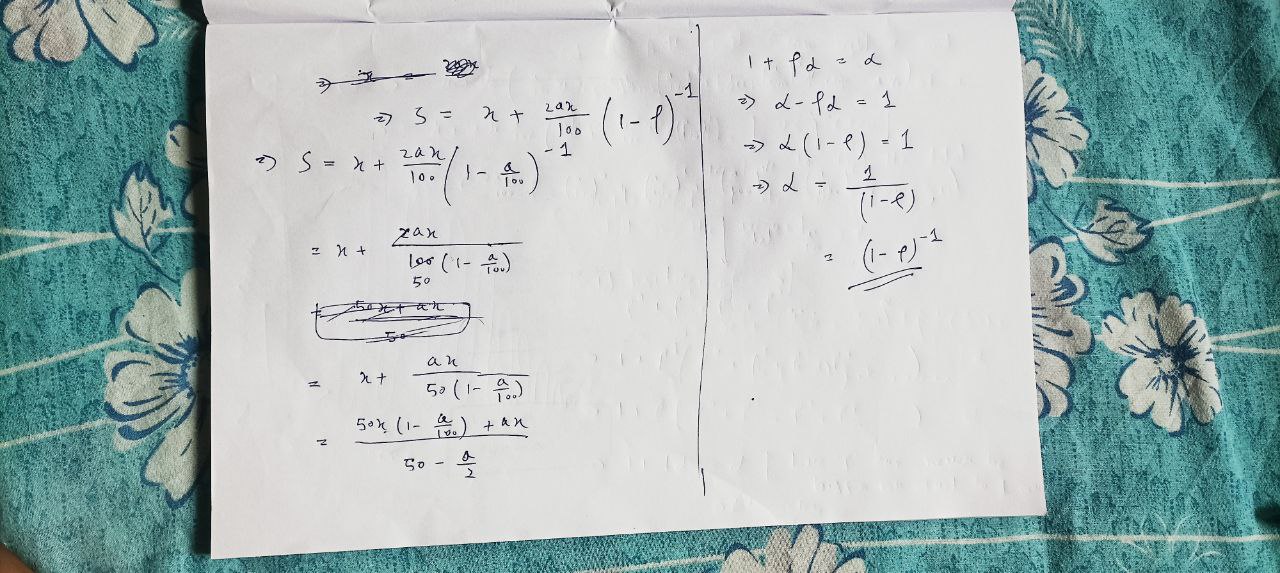 ⇒ S = x + 2ax/100 (1-ρ)^-1
⇒ S = x + 2ax/100 (1 - a/100)^-1
= x + 2ax/100 50 (1 - a/100)
= x + ax/50(1 - a/100)
= 50x (1 - a/100) + ax/50 - a/2
1 + ρα = α
⇒ α - ρα = 1
⇒ α(1-ρ) = 1
⇒ α = 1/(1-ρ)
= (1-ρ)^-1